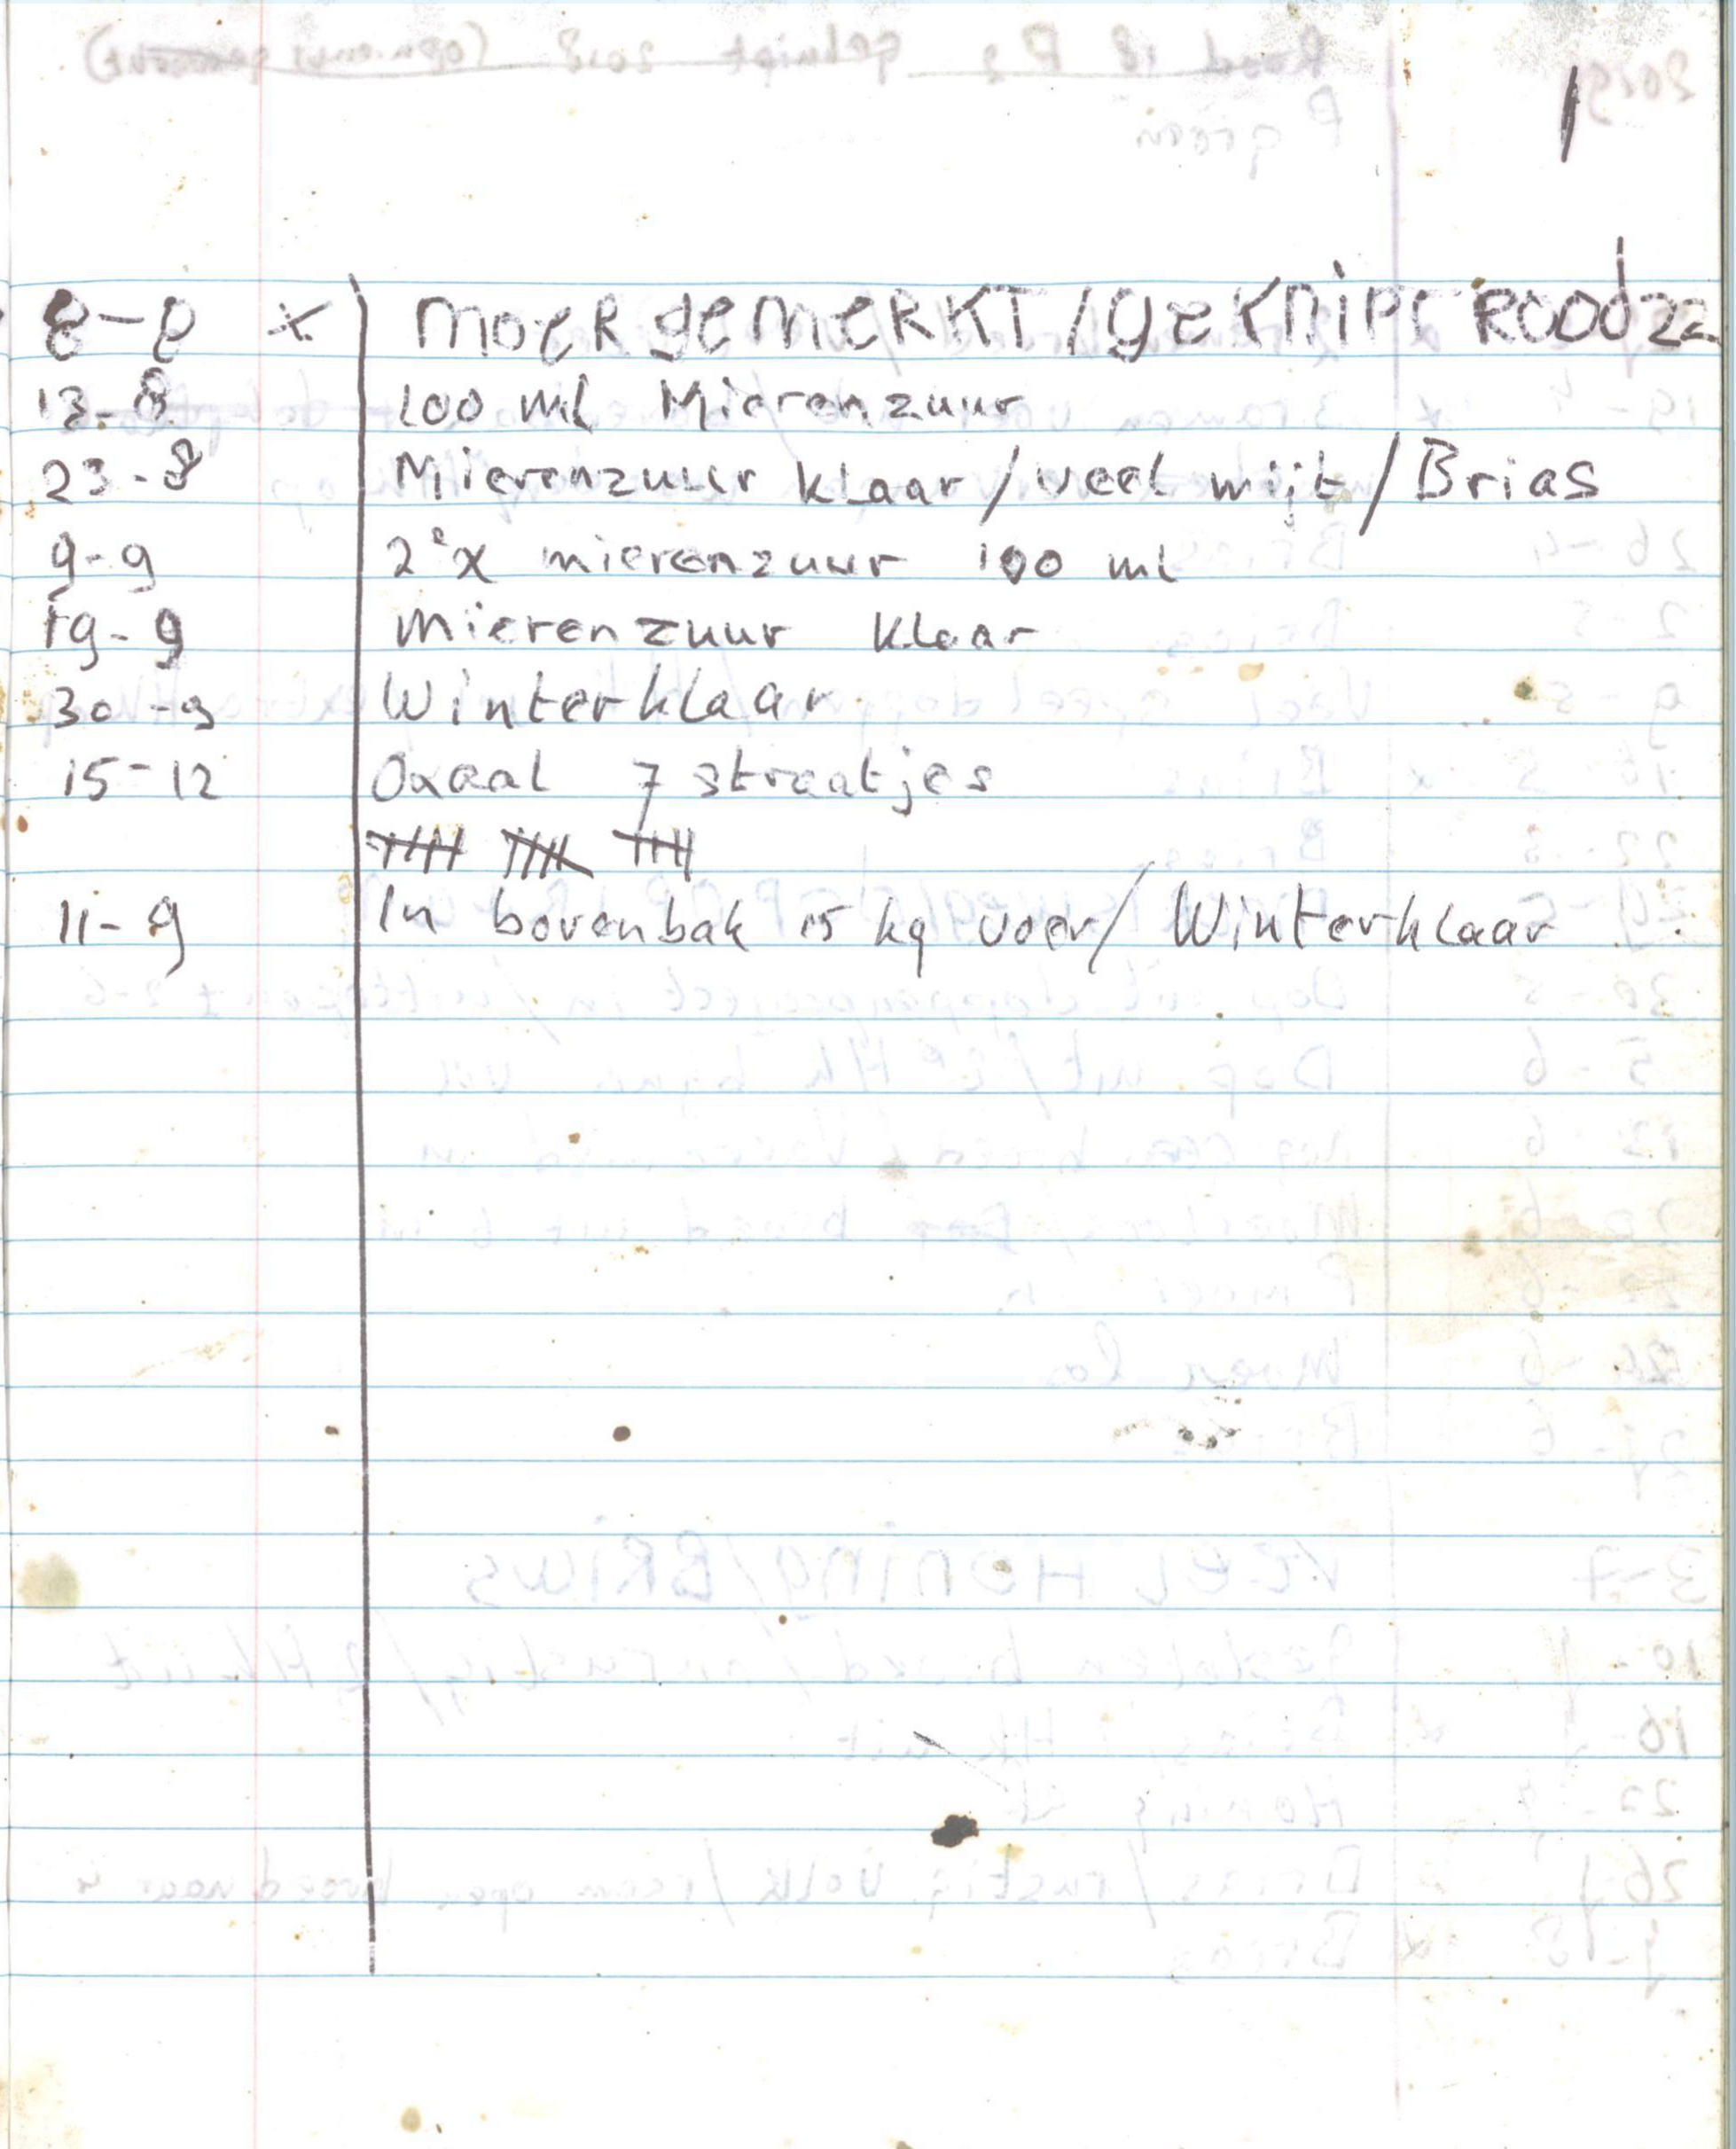 1
8-8 x moer gemerkt/geknipt Rood 22
13-8 100 ml Mierenzuur
23-8 Mierenzuur klaar/veel mijt/Brias
9-9 2e x mierenzuur 100 ml
19-9 Mierenzuur klaar
30-9 Winterklaar
15-12 Oxaal 7 straatjes
11-9 In bovenbak 15 kg voer/Winterklaar